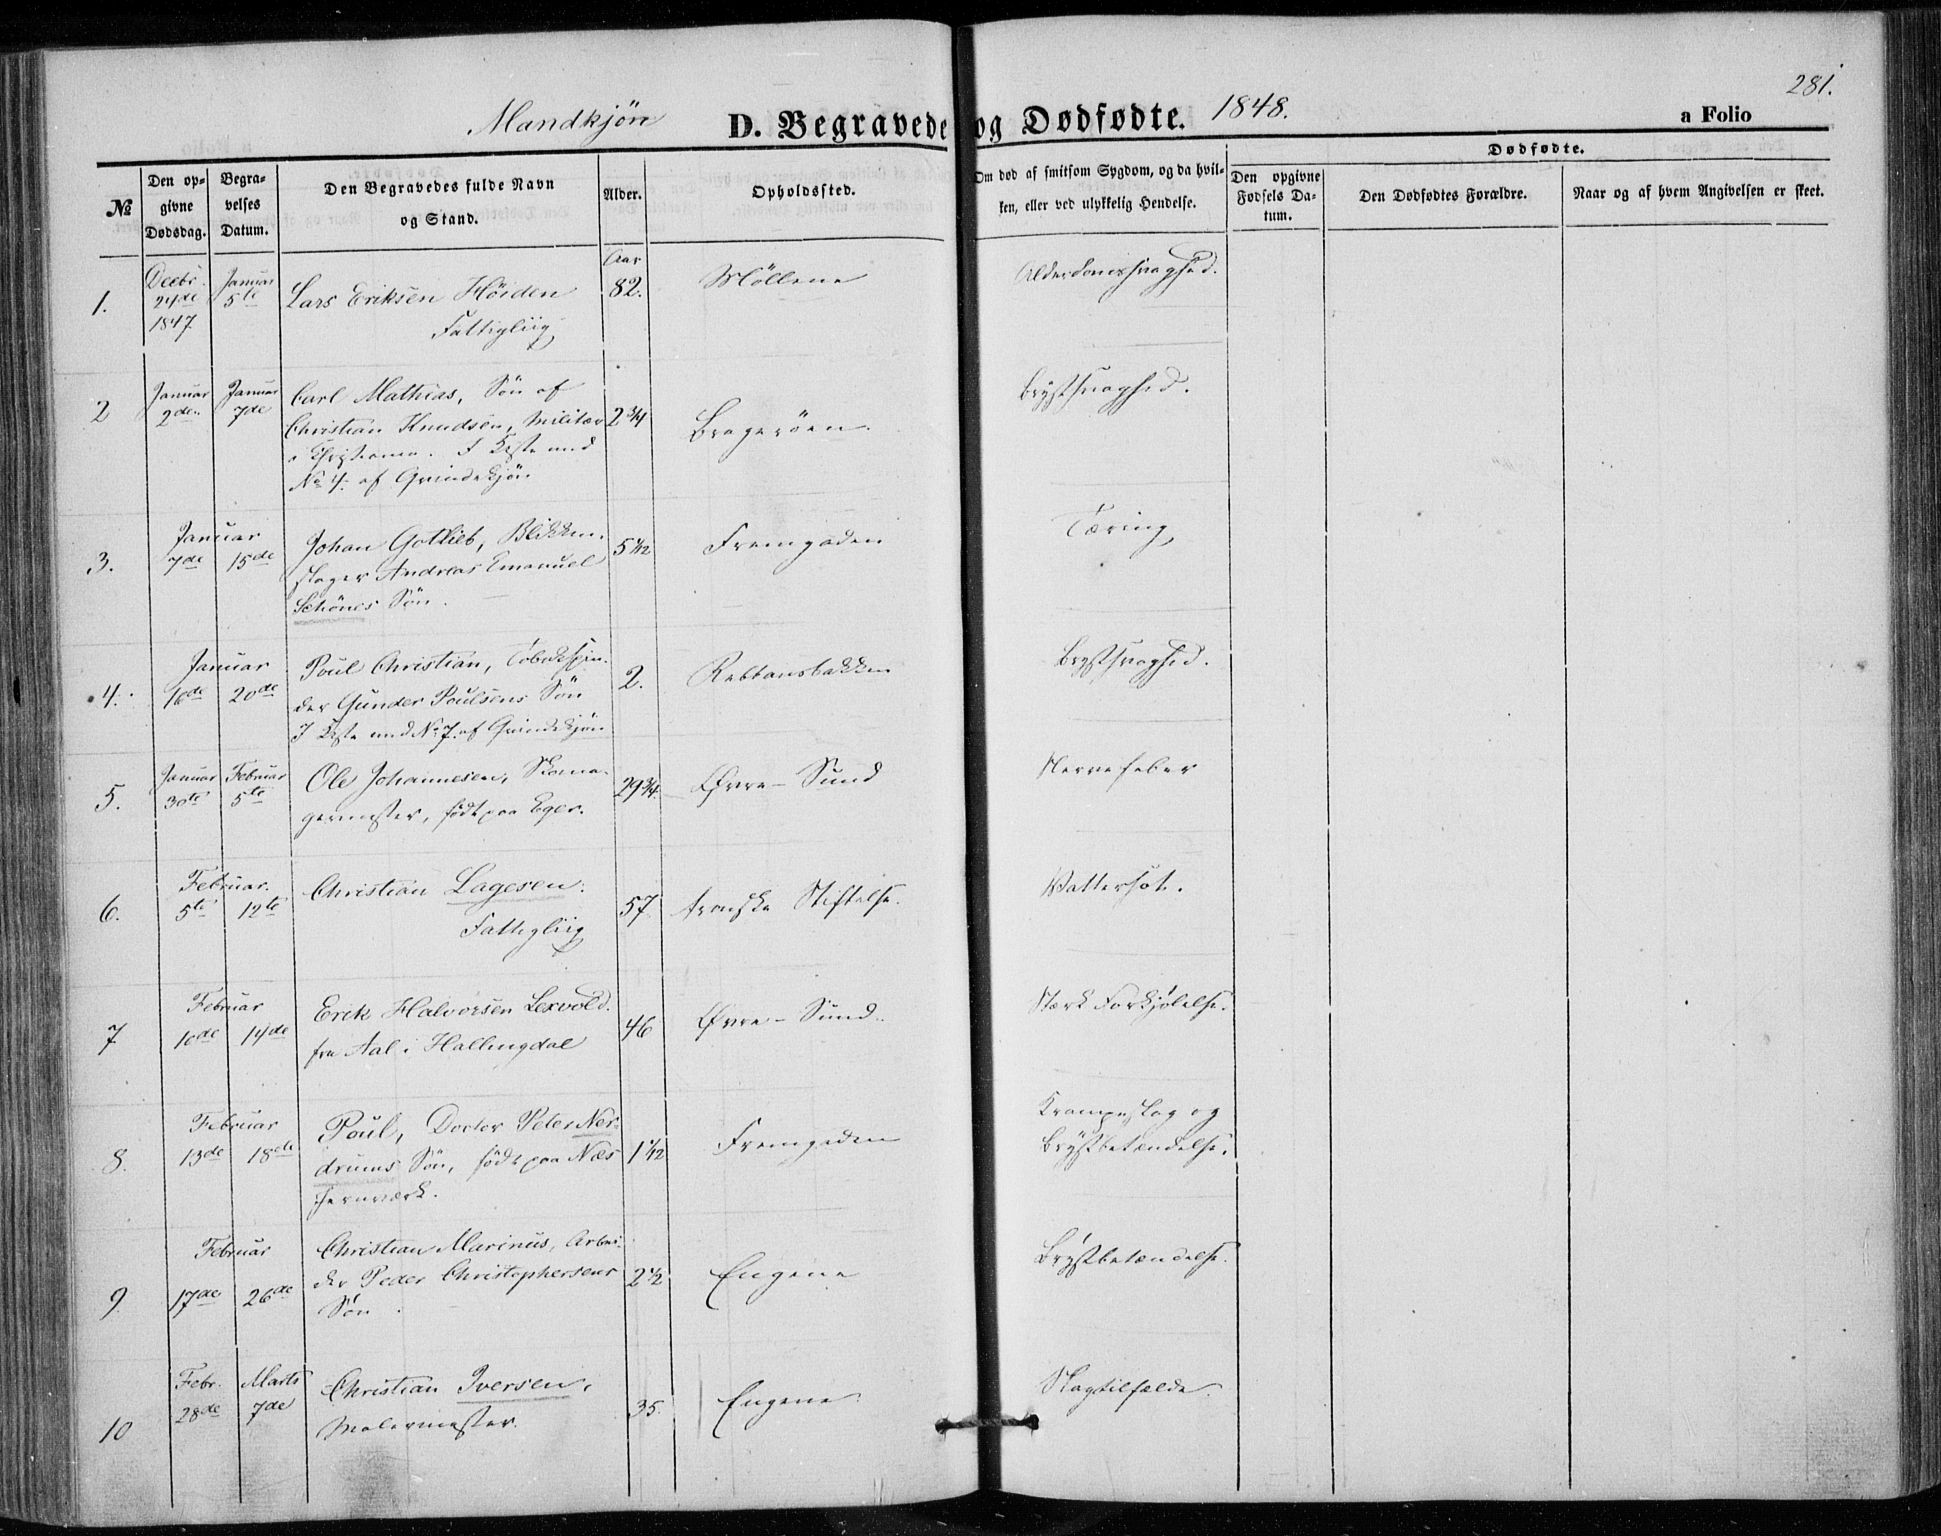 281.
Mandkjön D. Begravede og Dødfødte. 1848. a Folio
№
Den opgivne Dødsdag.
Begravelses Datum.
Den Begravedes fulde Navn og Stand.
Alder.
Opholdssted.
Om død af smitsom Sygdom, og da hvilken, eller ved ulykkelig Hendelse.
Dødfødte.
Den opgivne Fødsels Datum.
Den Dødfødtes Forældre.
Naar og af hvem Angivelsen er skeet.
Aar
1.
Decbr. 24de 1847.
Januar 5te
Lars Eriksen Höiden
Fattigliig
82.
Möllene
Alderdomssvaghed.
2
Januar 2den
Januar 7de
Carl Mathias, Sön af
Christian Knudsen, Militær
i Christiania. I Kiste med
No 4. af Qvindekjön
2 3/4
Bragerøen.
Brystsvaghed.
3.
Januar
7de 15de
Johan Gotlieb, Blikken-
slager Andreas Emanuel
Schönes Sön.
5 1/12
Fremgaden
Tæring
4.
Januar
16de 20de
Poul Christian, Tobakspin-
der Gunder Poulsens Sön
I Kiste med No 7. af Qvindekjön
2.
Rebbansbakken
Brystsvaghed.
5.
Januar 30te
Februar 5te
Ole Johannesen, Skoma-
germester, födt paa Eger.
29 3/4.
Øvre-Sund
Nervefeber
6.
Februar.
5te 12te
Christian Lagesen.
Fattigliig
57
Arenske Stiftelse.
Vattersot.
7
Februar
10de 14de
Erik Halvorsen Lexvold.
fra Aal i Hallingdal
46
Øvre-Sund.
Stærk Forkjølelse.
8.
Februar
13de 18de
Poul, Doctor Peter Ner-
drums Sön, födt paa Næs
Jernværk.
1 1/12
Fremgaden
Krampeslag og
Brystbetændelse.
9.
Februar
17de 26de
Christian Marinus, Arbei-
der Peder Christophersens
Sön.
2 1/2
Engene
Brystbetændelse.
10
Febr. 28de
Marts 7de
Christian Iversen,
Malermester.
35.
Engene.
Slagtilfælde.